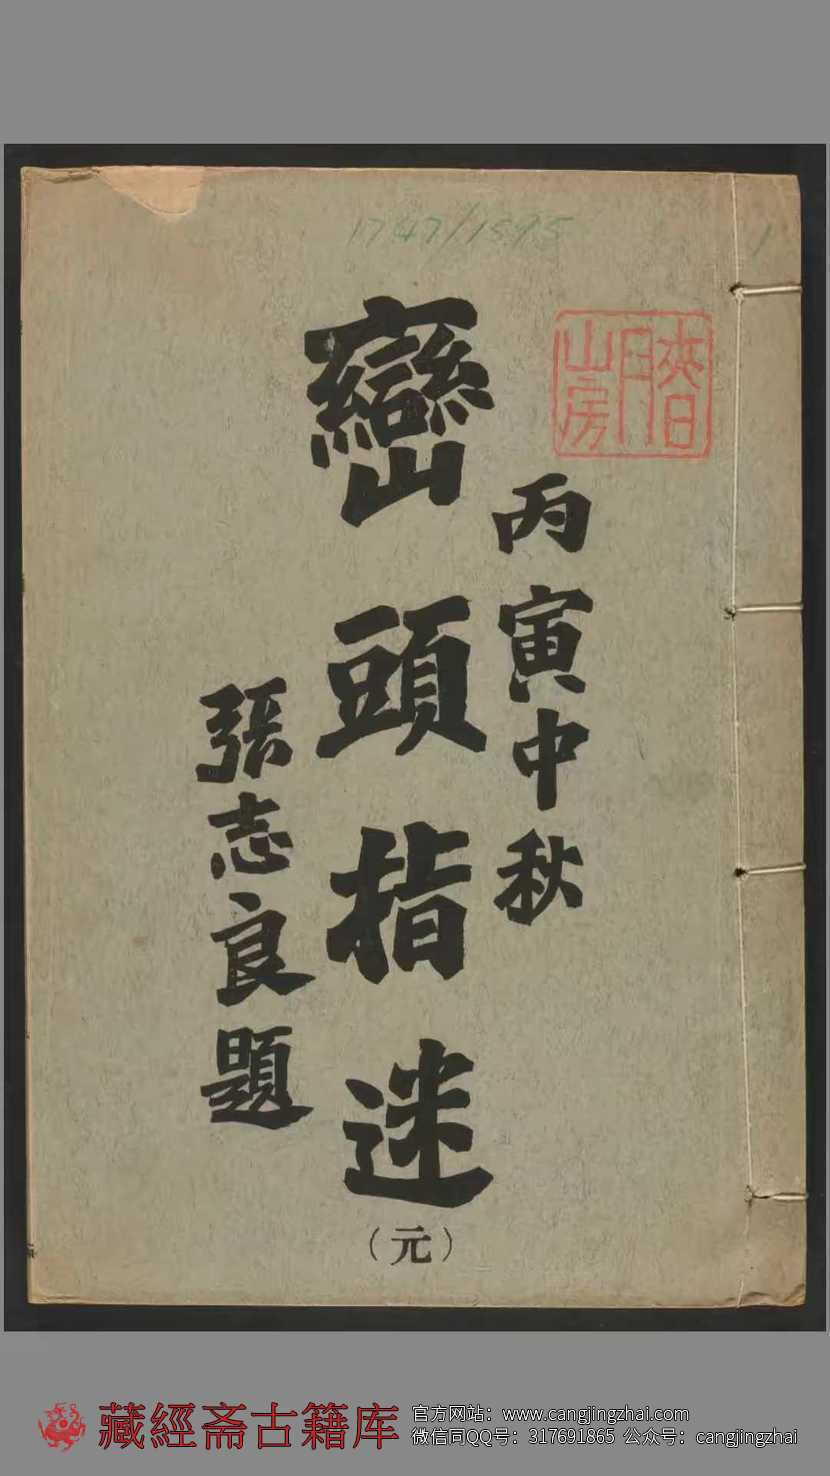 1747/1595
1
丙寅中秋
巒頭指迷
（元）
張志良題
山房
藏經斋古籍库
官方网站：www.cangjingzhai.com
微信同QQ号：317691865 公众号：cangjingzhai